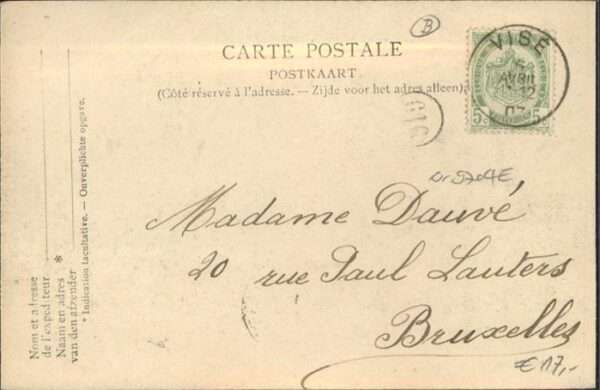 B
CARTE POSTALE
POSTKAART
(Côté réservé à l'adresse. — Zijde voor het adres alleen)
VISÉ
5
AVRIL
12
07
5c 5c
916
Madame Dauvé
20 rue Paul Lauters
Bruxelles
€ 17,-
Nom et adresse
de l'expéditeur
Naam en adres *
van den afzender
* Indication facultative. — Onverplichte opgave.